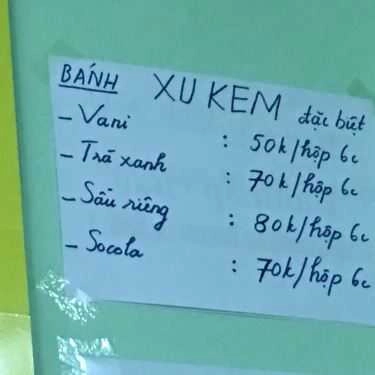 BÁNH XU KEM đặc biệt
- Vani : 50k/hộp 6c
- Trà xanh : 70k/hộp 6c
- Sầu riêng : 80k/hộp 6c
- Socola : 70k/hộp 6c